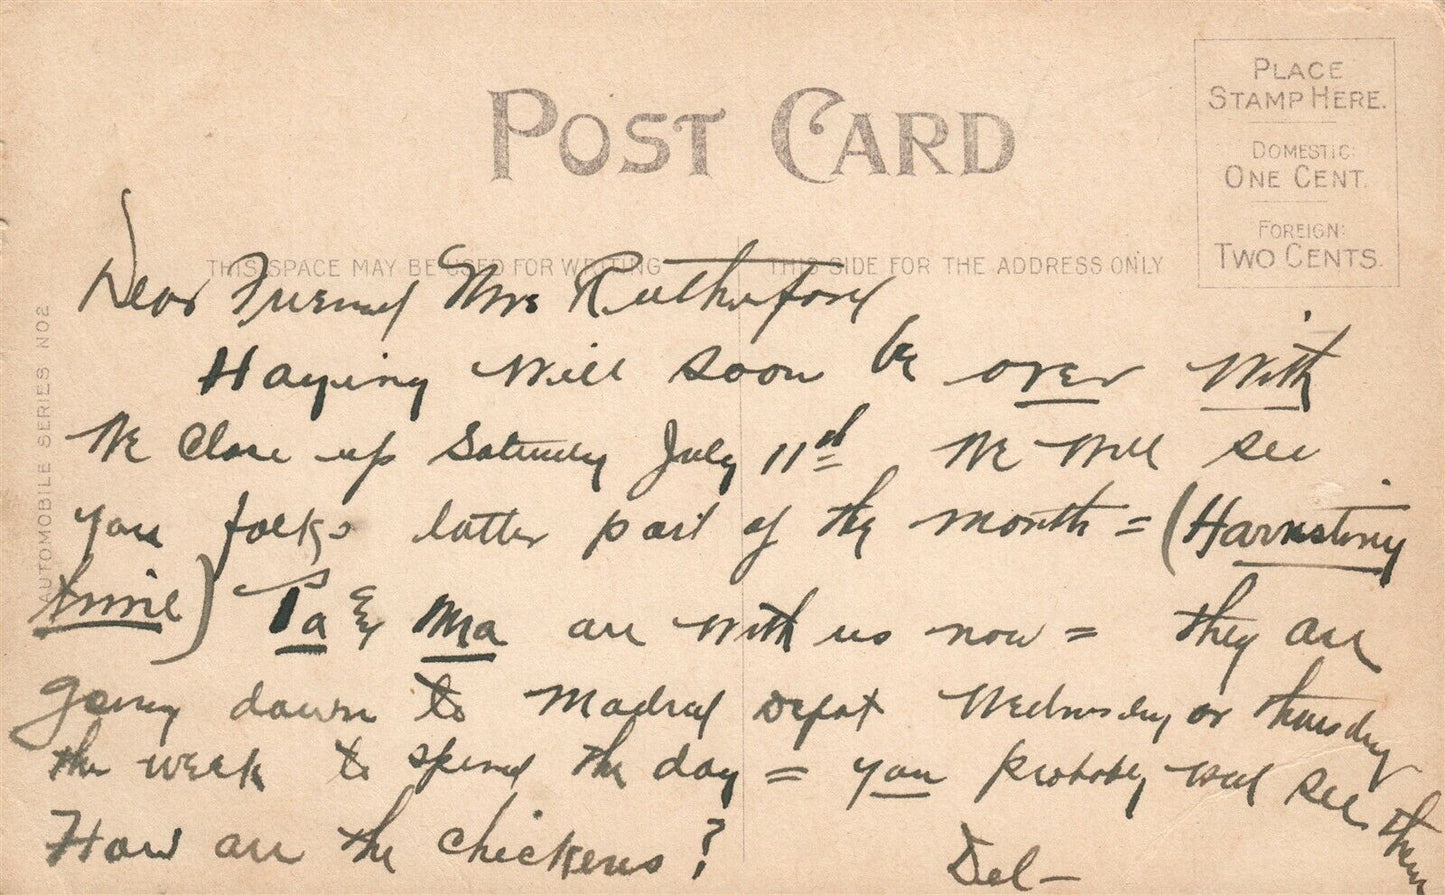 POST CARD
PLACE
STAMP HERE.
DOMESTIC:
ONE CENT.
FOREIGN:
TWO CENTS.
THIS SPACE MAY BE USED FOR WRITING
THIS SIDE FOR THE ADDRESS ONLY
AUTOMOBILE SERIES NO2
Dear Friend Mrs Rutherford
Haying will soon be over with
We Close up Saturday July 11
We will see
you folks latter part of the month = (Harvesting
time) Pa & Ma are with us now = they are
going down to Madrid Depot Wednesday or thursday
the week to spend the day = you probably will see them
How are the chickens?
Del-